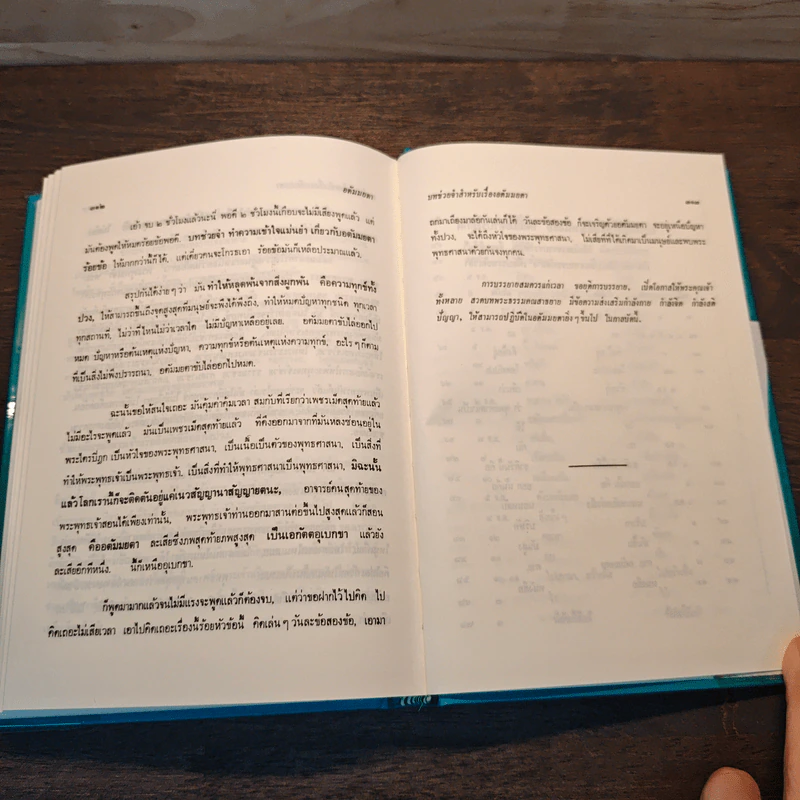 ๓๑๒ อตัมมยตา
เอ้า จบ ๒ ชั่วโมงแล้วนะนี่ พอดี ๒ ชั่วโมงนี้เกือบจะไม่มีเสียงพูดแล้ว แต่
มันต้องพูดให้หมดร้อยข้อพอดี. บทช่วยจำ ทำความเข้าใจแม่นยำ เกี่ยวกับอตัมมยตา
ร้อยข้อ ให้มากกว่านี้ก็ได้. แต่เดี๋ยวคนจะโกรธเอา ร้อยข้อมันก็เหลือประมาณแล้ว.
สรุปกันได้ง่าย ๆ ว่า มัน ทำให้หลุดพ้นจากสิ่งผูกพัน คือความทุกข์ทั้ง
ปวง, ให้สามารถขึ้นถึงจุดสูงสุดที่มนุษย์จะพึงได้พึงถึง, ทำให้หมดปัญหาทุกชนิด ทุกเวลา
ทุกสถานที่, ไม่ว่าที่ไหนไม่ว่าเวลาใด ไม่มีปัญหาเหลืออยู่เลย. อตัมมยตาขับไล่ออกไป
หมด ปัญหาหรือต้นเหตุแห่งปัญหา, ความทุกข์หรือต้นเหตุแห่งความทุกข์, อะไร ๆ ก็ตาม
ที่เป็นสิ่งไม่พึงปรารถนา, อตัมมยตาขับไล่ออกไปหมด.
ฉะนั้นขอให้สนใจเถอะ มันคุ้มค่าคุ้มเวลา สมกับที่เรียกว่าเพชรเม็ดสุดท้ายแล้ว
ไม่มีอะไรจะพูดแล้ว มันเป็นเพชรเม็ดสุดท้ายแล้ว ที่ดึงออกมาจากที่มันหลงซ่อนอยู่ใน
พระไตรปิฎก เป็นหัวใจของพระพุทธศาสนา, เป็นเนื้อเป็นตัวของพุทธศาสนา, เป็นสิ่งที่
ทำให้พระพุทธเจ้าเป็นพระพุทธเจ้า, เป็นสิ่งที่ทำให้พุทธศาสนาเป็นพุทธศาสนา, มิฉะนั้น
แล้วโลกเรานี้ก็จะติดตันอยู่แค่เนวสัญญานาสัญญายตนะ, อาจารย์คนสุดท้ายของ
พระพุทธเจ้าสอนได้เพียงเท่านั้น, พระพุทธเจ้าท่านออกมาสานต่อขึ้นไปสูงสุดแล้วก็สอน
สูงสุด คืออตัมมยตา ละเสียซึ่งภพสุดท้ายภพสูงสุด เป็นเอกัตตอุเบกขา แล้วยัง
ละเสียอีกทีหนึ่ง. นี้ก็เหนืออุเบกขา.
ก็พูดมามากแล้วจนไม่มีแรงจะพูดแล้วก็ต้องจบ, แต่ว่าขอฝากไว้ไปคิด ไป
คิดเถอะไม่เสียเวลา เอาไปคิดเถอะเรื่องนี้ร้อยหัวข้อนี้ คิดเล่น ๆ วันละข้อสองข้อ, เอามา
บทช่วยจำสำหรับเรื่องอตัมมยตา ๓๑๓
ถกมาเถียงมาล้อกันเล่นก็ได้ วันละข้อสองข้อ ก็จะเจริญด้วยอตัมมยตา จะอยู่เหนือปัญหา
ทั้งปวง, จะได้ถึงหัวใจของพระพุทธศาสนา, ไม่เสียทีที่ได้เกิดมาเป็นมนุษย์และพบพระ
พุทธศาสนาด้วยกันจงทุกคน.
การบรรยายสมควรแก่เวลา ขอยุติการบรรยาย, เปิดโอกาสให้พระคุณเจ้า
ทั้งหลาย สวดบทพระธรรมคณสาธยาย มีข้อความส่งเสริมกำลังกาย กำลังจิต กำลังสติ
ปัญญา, ให้สามารถปฏิบัติในอตัมมยตายิ่ง ๆ ขึ้นไป ในกาลบัดนี้.